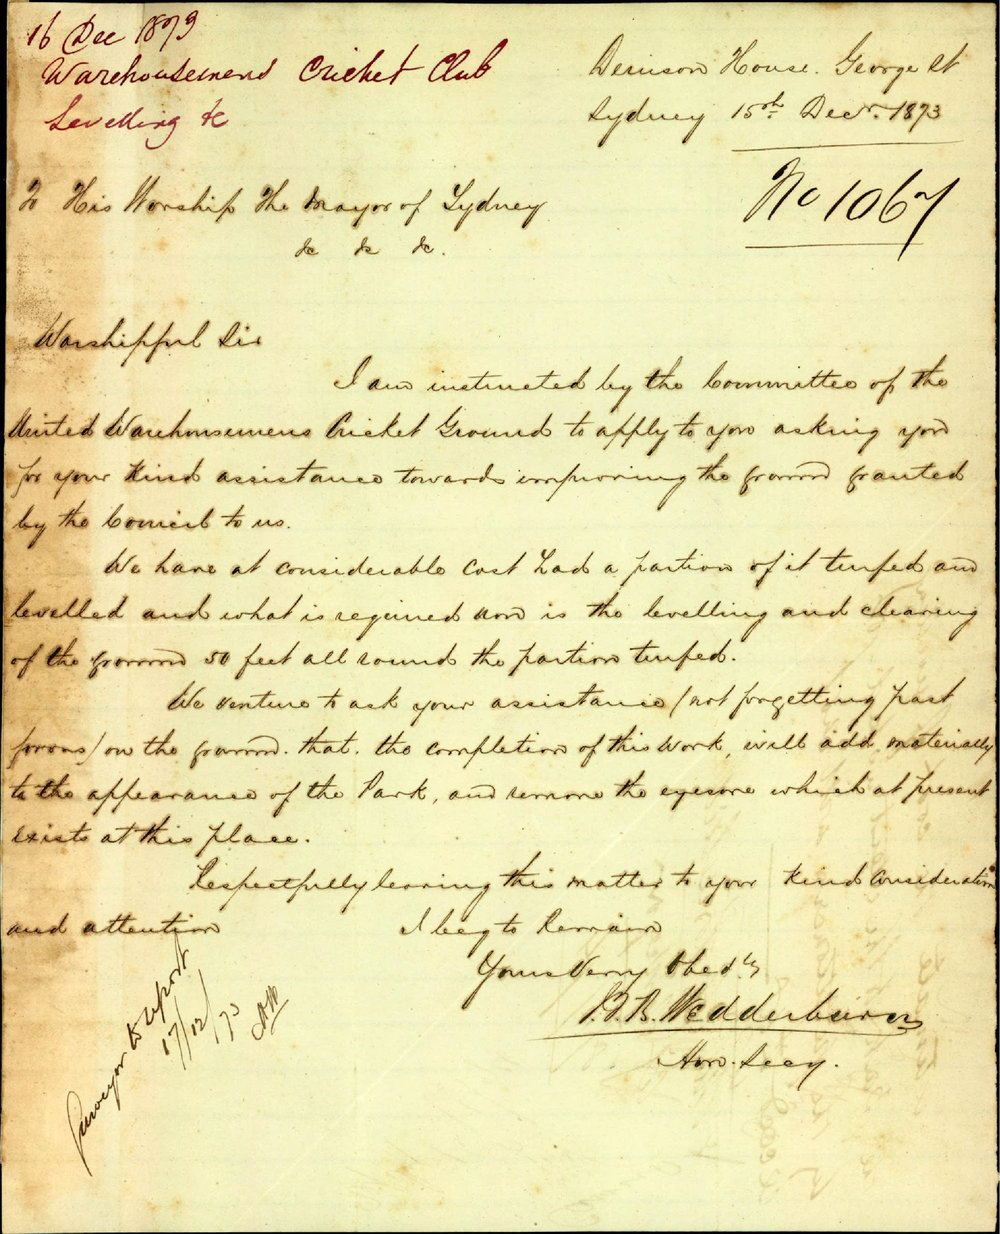 16 Dec 1873
Warehousemens Cricket Club
Levelling &c
Denison House. George St
Sydney 15th Decr. 1873
No 1067
To His Worship The Mayor of Sydney
&c &c &c.
Worshipful Sir
I am instructed by the Committee of the
United Warehousemens Cricket Ground to apply to you asking you
for your kind assistance towards improving the ground granted
by the Council to us.
We have at considerable cost had a portion of it turfed and
levelled and what is required now is the levelling and clearing
of the ground 50 feet all round the portion turfed.
We venture to ask your assistance (not forgetting past
favors) on the ground. that. the completion of this work, will add materially
to the appearance of the Park, and remove the eyesore which at present
exists at this place.
Respectfully leaving this matter to your kind consideration
and attention
I beg to Remain
Yours Very Obedtly
B. Wedderburn
Hon. Secy.
Surveyor to report
17/12/73